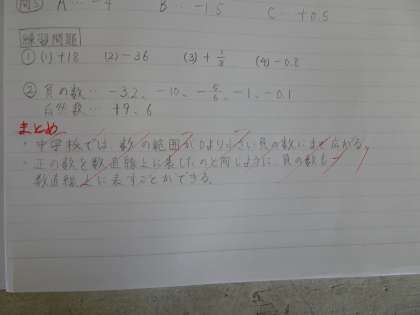 問3 A… -4 B… -1.5 C… +0.5
練習問題
① (1) +18 (2) -36 (3) +1/2 (4) -0.8
② 負の数… -3.2、-10、-5/6、-1、-0.1
自然数… +9、6
まとめ
・中学校では、数の範囲が0より小さい負の数にまで広がる。
・正の数を数直線上に表したのと同じように、負の数も
数直線上に表すことができる。